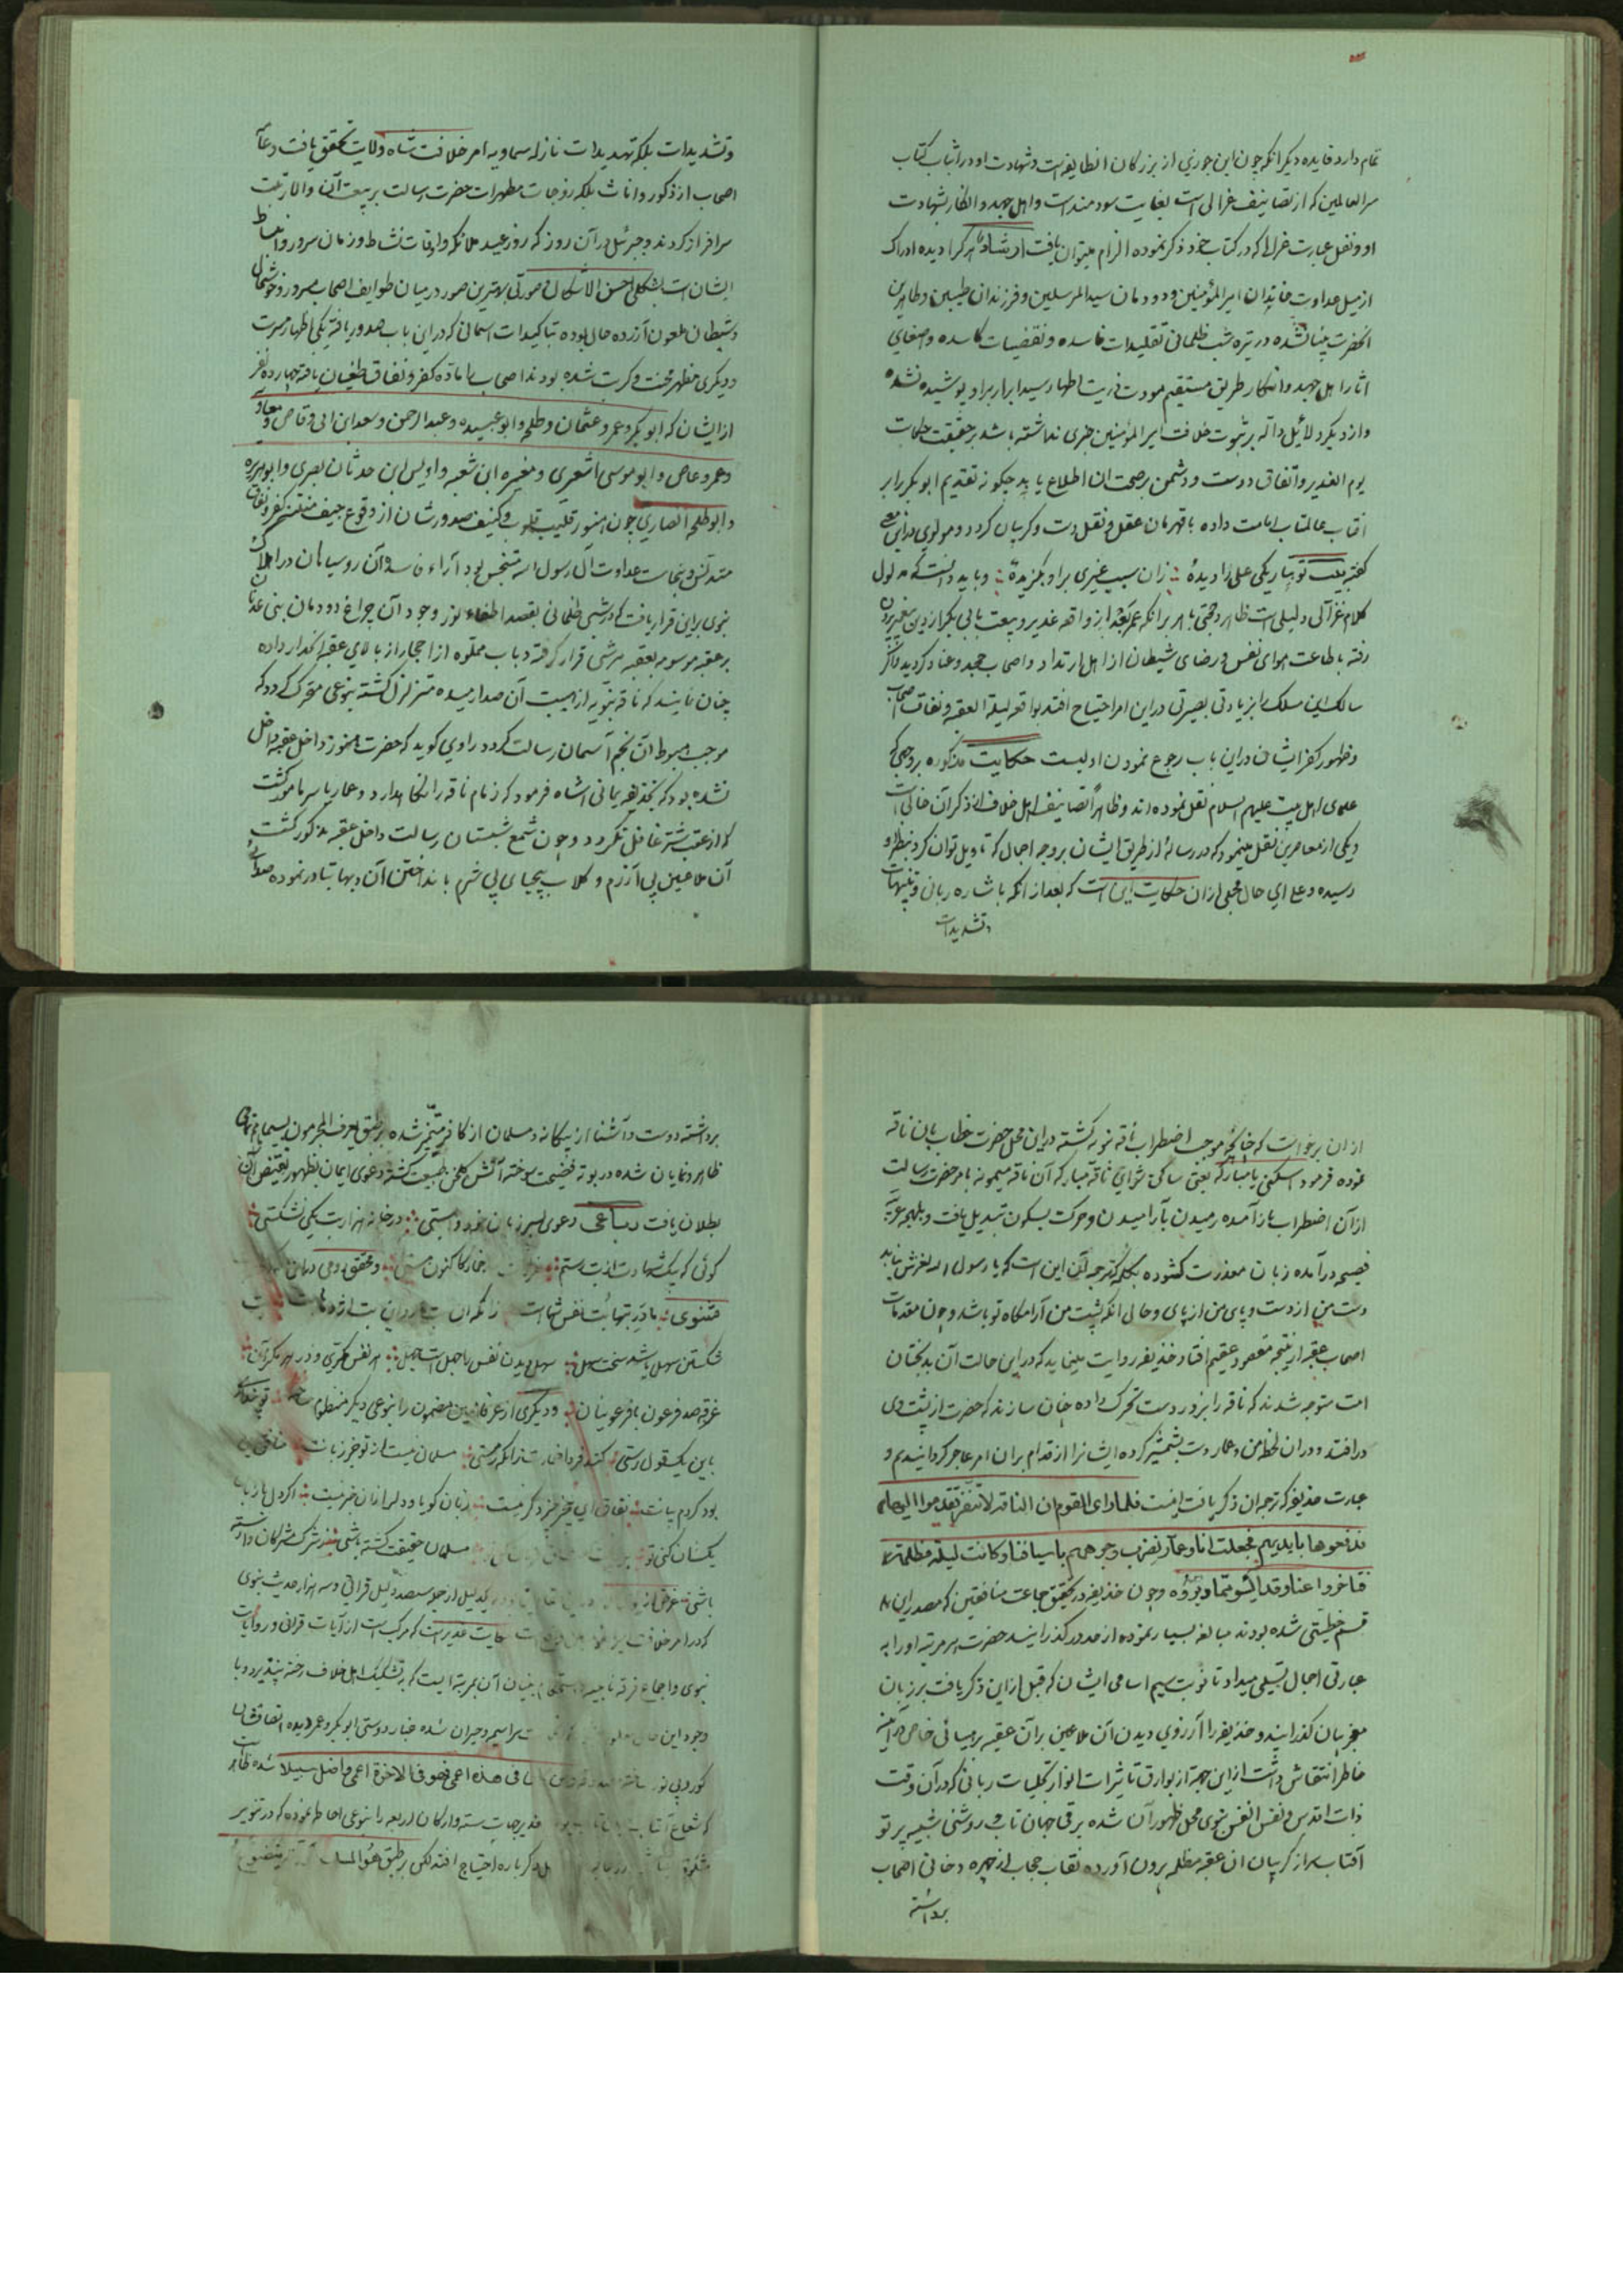 تمام دارد فایده دیگر انکه چون ابن جوزی از بزرکان انطایفه است و شهادت او در اثبات کتاب
سر العالمین که از تصانیف غزالی است بغایت سودمند است و اهل جهد و انکار بشهادت
او و نقل عبارت غزالی که در کتاب خود ذکر نموده الزام میتوان یافت ارشاد هر کرا دیده ادراک
از میل عداوت خاندان امیر المؤمنین و دودمان سید المرسلین و فرزندان طیبین و طاهرین
انحضرت نابینا نشده در تیره شب ظلمانی تقلیدات فاسده و نقیضات کاسده و اصغای
اثار اهل جهد و انکار طریق مستقیم مودت ذریت اطهار سید ابرار بر او پوشیده نشده
و از دیکر دلائل داله بر ثبوت خلافت امیر المؤمنین خبری نداشته باشد بر حقیقت حکایت
یوم الغدیر و اتفاق دوست و دشمن بر صحت ان اطلاع یابد چکونه تقدیم ابو بکر را بر
افتاب عالمتاب امامت داده با قهرمان عقل و نقل دست و کریبان کردد و مولوی در این معنی
کفته بیت تو بتاریکی علی را دیدهٔ زان سبب غیری بر او بکزیدهٔ و باید دانست که مدلول
کلام غزالی دلیلی است ظاهر و حجتی باهر بر انکه عمر بعد از واقعه غدیر و بیعت با ابی بکر از دین بیرون
رفته با طاعت هوای نفس و رضای شیطان از اهل ارتداد و اصحاب جحد و عناد کردید و اکر
سالک این مسلک را بزیادتی بصیرتی در این امر احتیاج افتد بواقعه لیلة العقبه و نفاق اصحاب
و ظهور کفر ایشان در این باب رجوع نمودن اولیست حکایت مذکوره بر وجهی که
علمای اهل بیت علیهم السلام نقل نموده اند و ظاهراً تصانیف اهل خلاف از ذکر آن خالی است
و یکی از معاصرین نقل مینمود که در رساله از طریق ایشان بر وجه اجمال که تاویل توان کرد بنظر او
رسیده و علی ای حال مجملی از ان حکایت این است که بعد از انکه باشاره ربانی و تنبیهات
و تشدیدات
و تشدیدات بلکه تهدیدات نازله سماویه امر خلافت شاه ولایت تحقق یافت و عامه
اصحاب از ذکور و اناث بلکه زوجات مطهرات حضرت رسالت بر بیعت آن والا رتبت
سرافراز کردند و جبرئیل در آن روز که روز عید ملائکه و اوقات نشاط و زمان سرور و انبساط
ایشان است بشکلی احسن الاشکال و صورتی بهترین صور در میان طوایف اصحاب مسرور و خوشحال
و شیطان ملعون آزرده حال بوده تاکیدات اسمانی که در این باب صدور یافته یکی اظهار مسرت
و دیکری مظهر محنت و کربت شده بودند اصحاب را ماده کفر و نفاق طغیان یافته چهارده نفر
از ایشان که ابو بکر و عمر و عثمان و طلحه و ابو عبیده و عبد الرحمن و سعد ابن ابی وقاص و معاویه
و عمرو عاص و ابو موسی اشعری و مغیره ابن شعبه و اویس ابن حدثان بصری و ابو هریره
و ابو طلحه انصاری چون هنوز قلیب قلوب و کنیف صدورشان از وقوع جیف منتنه کفر و نفاق
متدنس و بنجاست عداوت آل رسول الله متنجس بود آراء فاسده آن روسیاهان در اهلاک
نبوی براین قرار یافت که در شبی ظلمانی بقصد اطفاء نور وجود آن چراغ دودمان بنی عدنان
بر عقبه موسوم بعقبه هرشی قرار کرفته دباب مملوه از احجار از بالای عقبه انداز داده
چنان نمایند که ناقه نبویه از هیبت آن صدا رمیده متزلزل کشته بنوعی متحرک کردد که
موجب هبوط ان نجم آسمان رسالت کردد راوی کوید که حضرت هنوز داخل عقبه داخل
نشده بود که بحذیفه یمانی اشاه فرمود که زمام ناقه را نکاهدارد و عمار یاسر مامور کشت
که از عقب شتر غافل نکردد و چون شمع شبستان رسالت داخل عقبه مذکور کشت
آن ملاعین بی آزرم و کلاب بیحیای بی شرم بانداختن آن دبها تبادر نموده صدائی
از ان برخواست که موجب اضطراب ناقه نبویه کشته در این محل حضرت خطاب بان ناقه
نموده فرمود اسکنی یا مبارکه یعنی ساکن شو ای ناقه مبارکه آن ناقه میمونه بامر حضرت رسالت
از آن اضطراب باز آمده رمیدن بآرامیدن و حرکت بسکون تبدیل یافت و بلهجه عربیه
فصیحه در آمده زبان معذرت کشوده بکلمه که ترجمه آن این است که یا رسول الله لغزش نیابد
دست من از دست و پای من از پای و حال انکه پشت من آرامکاه تو باشد و چون مقدمات
اصحاب عقبه از نتیجه مقصود عقیم افتاد حذیفه روایت مینماید که در این حالت آن بدبختان
امت متوجه شدند که ناقه را بزور دست تحرک داده چنان سازند که حضرت از پشت وی
در افتند و در ان لحظه من و عمار دست بشمشیر کرده ایشانرا از اقدام بر ان امر عاجر کردانیدیم و
عبارت حذیفه که ترجمه ان ذکر یافت اینست فلما رای القوم ان الناقة لا تنفر تقدموا الیها
فدفعوها بایدیهم فجعلت انا و عمار نضرب وجوههم باسیافنا و کانت لیلة مظلمة
فتاخروا عنا و قد ایسوا مما دبروه و چون حذیفه در تحقیق جماعت منافقین که مصدر این
قسم خطیئتی شده بودند مبالغه بسیار نموده از حد در کذرانید حضرت هر مرتبه او را به
عبارتی اجمال تسلی میداد تا نوبت سیم اسامی ایشان که قبل از این ذکر یافت بر زبان
معجز بیان کذرانید و حذیفه را آرزوی دیدن آن ملاعین بر آن عقبه بر میاتی خاص در آینه
خاطر انتقاش داشت از این جهة از بوارق تاثیرات انوار تجلیات ربانی که در آن وقت
ذات اقدس و نفس انفس نبوی محل ظهور آن شده برقی جهان تاب در روشنی شبیه بپرتو
آفتاب سر از کریبان ان عقبه مظلمه برون آورده نقاب حجاب از چهره دخانی اصحاب
برداشته
برداشته دوست و آشنا از بیکانه و مسلمان از کافر متمیز شده بر طبق یعرف المجرمون بسیماهم تمامی
ظاهر و نمایان شده در بوته فضیحت سوخته آتش کلخن طبیعت کشته دعوی ایمان بظهور نقیض آن
بطلان یافت رباعی دعوی بسر زبان خود در بستی در خانه هزار بت یکی نشکستی
کوئی که بیک شهادت از بت رستم خمار کاکنون مستی و محقق رومی در این
مثنوی مادر بتها بت نفس شماست زانکه ان بت مار و این بت اژدهاست
شکستن سهل باشد سخت سهل سهل دیدن نفس را جهل است جهل هر نفس مکری و در هر مکر آن
غرق صد فرعون با فرعونیان و دیکری از عرفا همین مضمون را بنوعی دیکر منظوم
باین یکقول رستی کند فردا زانکه رستی مسلمان نیست از تو جز زبانت
بود کردم بیانت نفاق ای بیخبر چیزی دکر نیست زبان کویا و دلرا زان خبر نیست اکر دل با زبان
یکسان کنی تو مسلمان حقیقت کشته باشی ز شرک مشرکان وارسته
باشی غرض از دلیل از جمله سیصد دلیل قرانی و سه هزار حدیث نبوی
که در امر خلافت حکایت غدیر است که مرکب است از آیات قرانی و روایات
نبوی و اجماع فرقه ناجیه و استحکام بنیان آن بمرتبه ایست که بتشکیک اهل خلاف رخنه نپذیرد و با
وجود این سراسیمه و حیران شده غبار دوستی ابو بکر و عمر دیده انصافشان
کور و بی نور ساخته فی هذه اعمی فهو فی الاخرة اعمی و اضل سبیلا شده ظاهر
که شعاع آفتاب غدیر جهات سته و ارکان اربعه را بنوعی احاطه نموده که در تنویر
دکر باره احتیاج افتد لکن بر طبق هو المسک